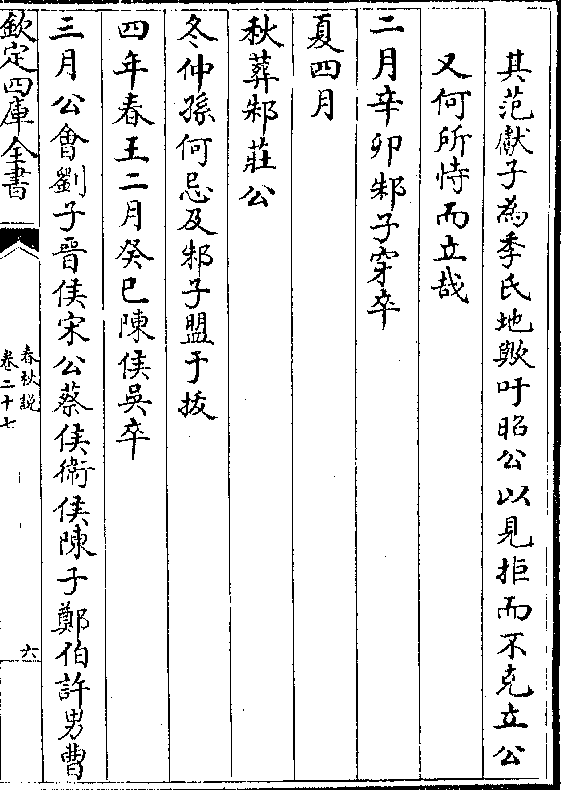 其范獻子為季氏地歟吁昭公以見拒而不克立公
又何所恃而立哉
二月辛卯邾子穿卒
夏四月
秋葬邾莊公
冬仲孫何忌及邾子盟于拔
四年春王二月癸巳陳侯吳卒
三月公會劉子晉侯宋公蔡侯衛侯陳子鄭伯許男曹
欽定四庫全書
春秋説
卷二十七
六